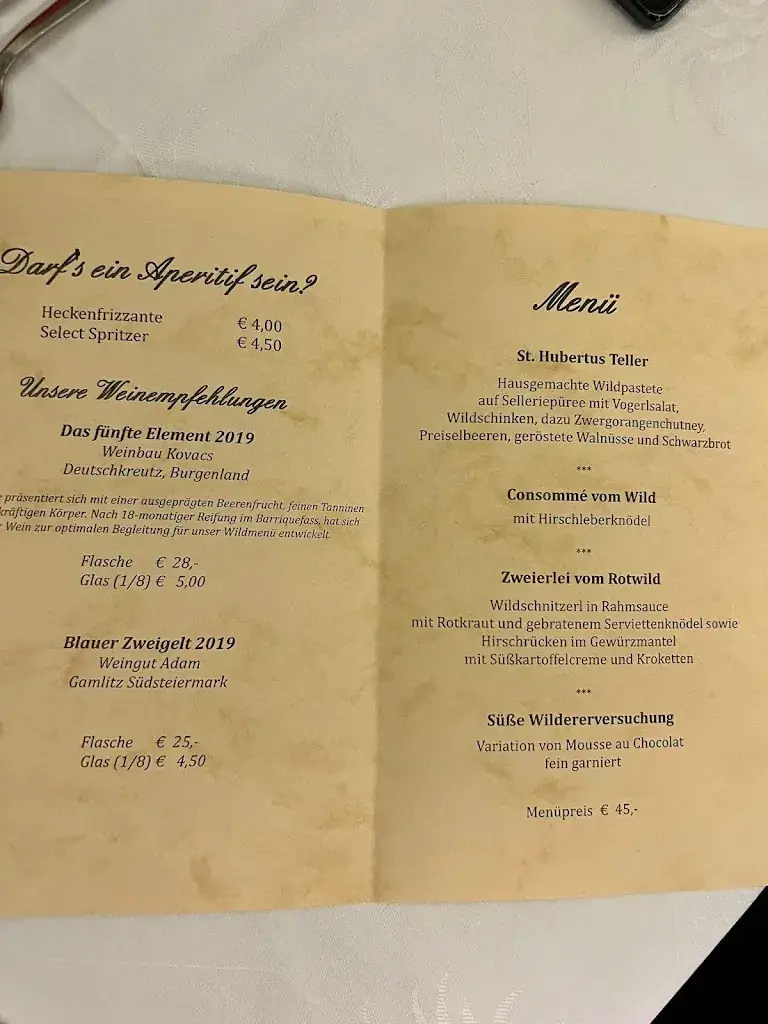 Darf's ein Aperitif sein?
Heckenfrizzante € 4,00
Select Spritzer € 4,50
Unsere Weinempfehlungen
Das fünfte Element 2019
Weinbau Kovacs
Deutschkreutz, Burgenland
präsentiert sich mit einer ausgeprägten Beerenfrucht, feinen Tanninen
kräftigen Körper. Nach 18-monatiger Reifung im Barriquefass, hat sich
Wein zur optimalen Begleitung für unser Wildmenü entwickelt.
Flasche € 28,-
Glas (1/8) € 5,00
Blauer Zweigelt 2019
Weingut Adam
Gamlitz Südsteiermark
Flasche € 25,-
Glas (1/8) € 4,50
Menü
St. Hubertus Teller
Hausgemachte Wildpastete
auf Selleriepüree mit Vogerlsalat,
Wildschinken, dazu Zwergorangenchutney,
Preiselbeeren, geröstete Walnüsse und Schwarzbrot
***
Consommé vom Wild
mit Hirschleberknödel
***
Zweierlei vom Rotwild
Wildschnitzerl in Rahmsauce
mit Rotkraut und gebratenem Serviettenknödel sowie
Hirschrücken im Gewürzmantel
mit Süßkartoffelcreme und Kroketten
***
Süße Wilderervesuchung
Variation von Mousse au Chocolat
fein garniert
Menüpreis € 45,-